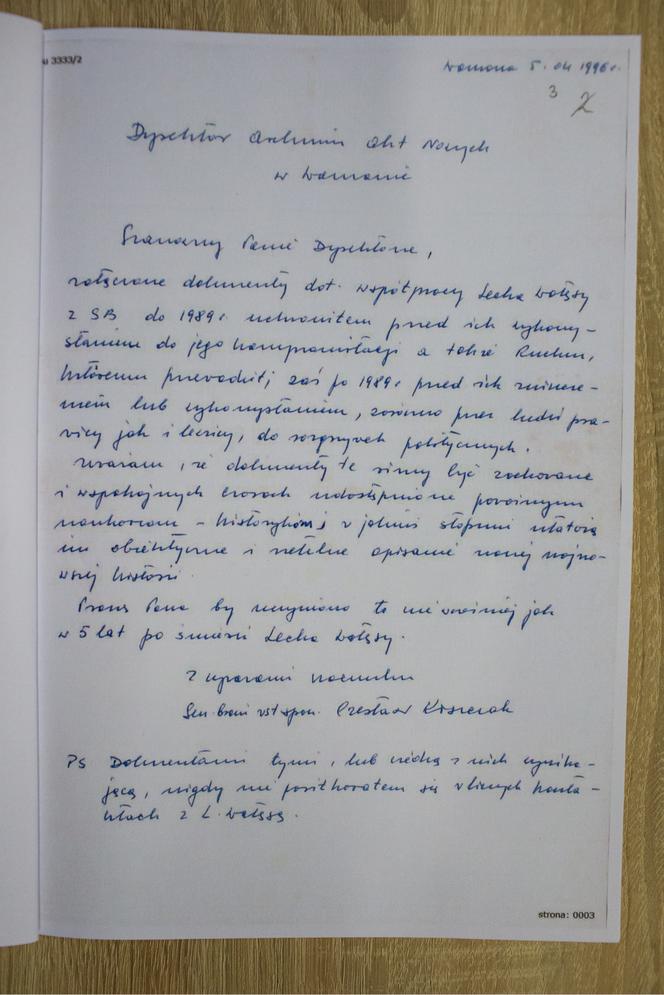 3333/2
Warszawa 5.04 1996 r.
3 2
Dyrektor Archiwum Akt Nowych
w Warszawie
Szanowny Panie Dyrektorze,
załączone dokumenty dot. współpracy Lecha Wałęsy
z SB do 1989 r. uchroniłem przed ich wykorzy-
staniem do jego kompromitacji a także Ruchu,
któremu przewodził; zaś po 1989 r przed ich zniszcze-
niem lub wykorzystaniem, zarówno przez ludzi pra-
wicy jak i lewicy, do rozgrywek politycznych.
Uważam, że dokumenty te winny być zachowane
i w spokojnych czasach udostępnione poważnym
naukowcom - historykom i w jakimś stopniu ułatwią
im obiektywne i rzetelne opisanie naszej najno-
wszej historii.
Proszę Pana by uczyniono to nie wcześniej jak
w 5 lat po śmierci Lecha Wałęsy.
Z wyrazami szacunku
Gen. broni w st. spocz. Czesław Kiszczak
PS Dokumentami tymi, lub wiedzą z nich wynika-
jącą, nigdy nie posiłkowałem się w licznych konta-
ktach z L. Wałęsą.
strona: 0003